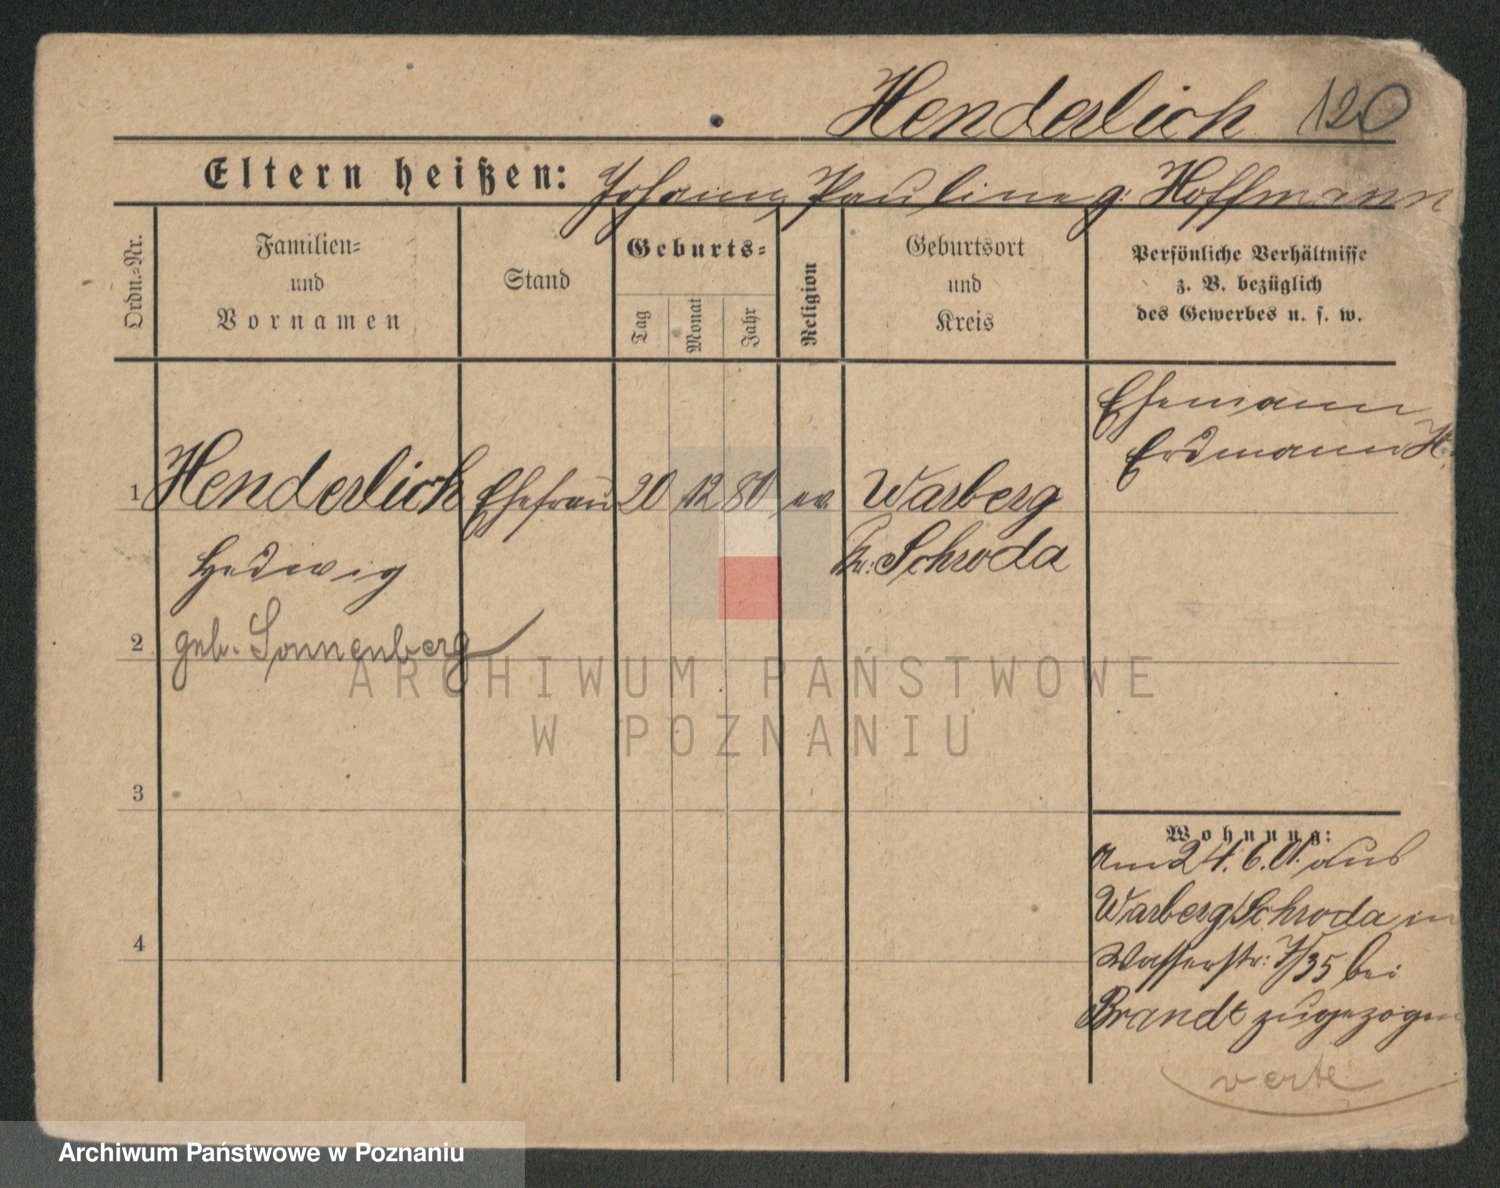 Henderlich 120
Eltern heißen: Johann, Pauline g. Hoffmann
Ordn.-Nr.
Familien-
und
Vornamen
Stand
Geburts-
Tag
Monat
Jahr
Religion
Geburtsort
und
Kreis
Persönliche Verhältnisse
z. B. bezüglich
des Gewerbes u. s. w.
Ehemann
Erdmann H.
1 Henderlich Ehefrau 20 12 80 ev. Warberg
Hedwig Kr: Schroda
2 geb. Sonnenberg
3
4
Wohnung:
Am 24. 6. 01. aus
Warberg/Schroda in
Wasserstr: 7/35 bei
Brandt zugezogen
verte
ARCHIWUM PAŃSTWOWE
W POZNANIU
Archiwum Państwowe w Poznaniu